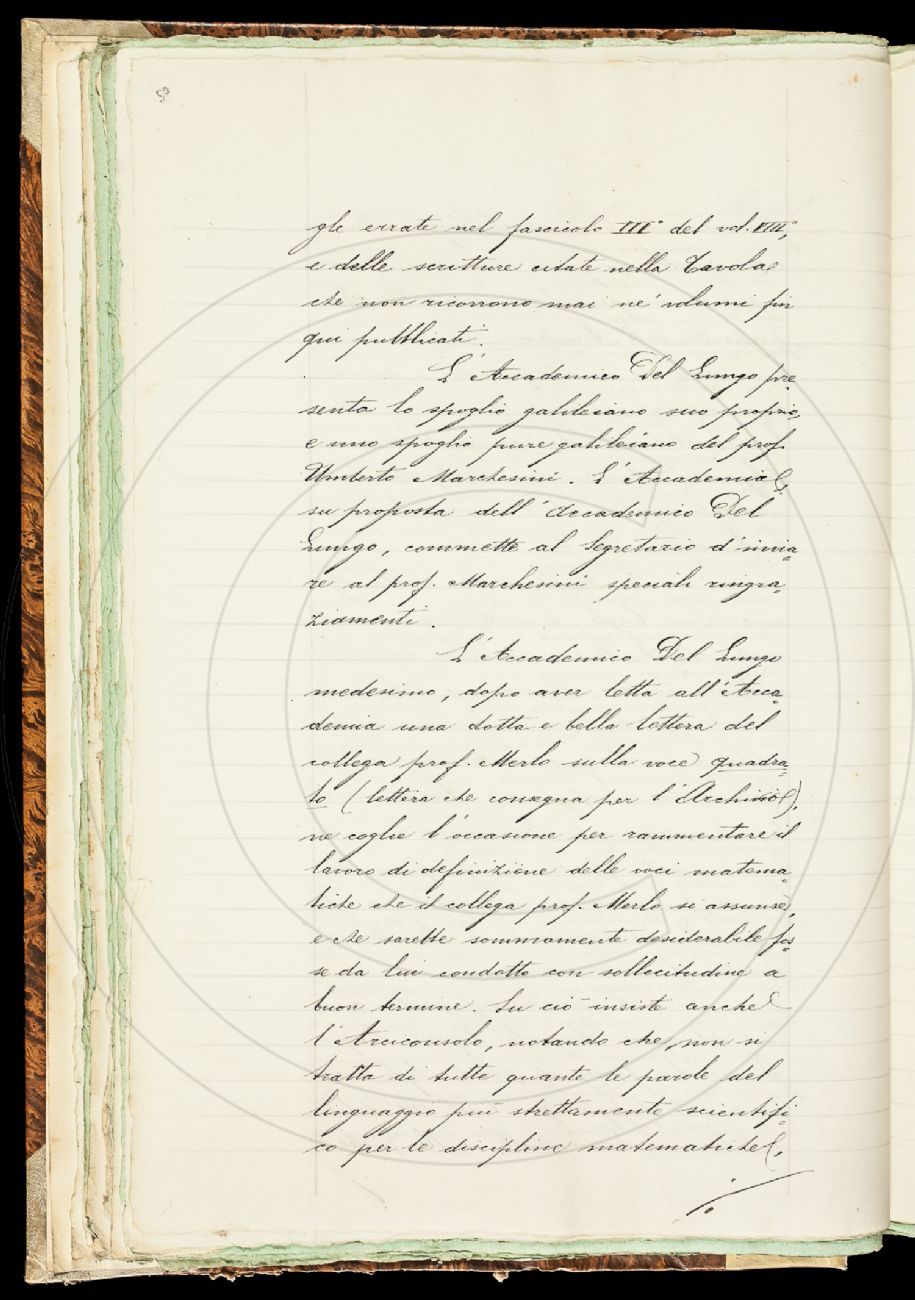 gle errate nel fascicolo III° del vol. VIII°,
e delle scritture citate nella Tavola
che non ricorrono mai ne' volumi fin
qui pubblicati.
L'Accademico Del Lungo pre=
senta lo spoglio galileiano suo proprio,
e uno spoglio pure galileiano del prof.
Umberto Marchesini. L'Accademia,
su proposta dell'Accademico Del
Lungo, commette al Segretario d'invia=
re al prof. Marchesini speciali ringra=
ziamenti.
L'Accademico Del Lungo
medesimo, dopo aver letta all'Acca=
demia una dotta e bella lettera del
collega prof. Merlo sulla voce quadra=
to (lettera che consegna per l'Archivio),
ne coglie l'occasione per rammentare il
lavoro di definizione delle voci matema=
tiche che il collega prof. Merlo si assunse,
e che sarebbe sommamente desiderabile fos=
se da lui condotto con sollecitudine a
buon termine. Su ciò insiste anche
l'Arciconsolo, notando che non si
tratta di tutte quante le parole del
linguaggio più strettamente scientifi=
co per le discipline matematiche,